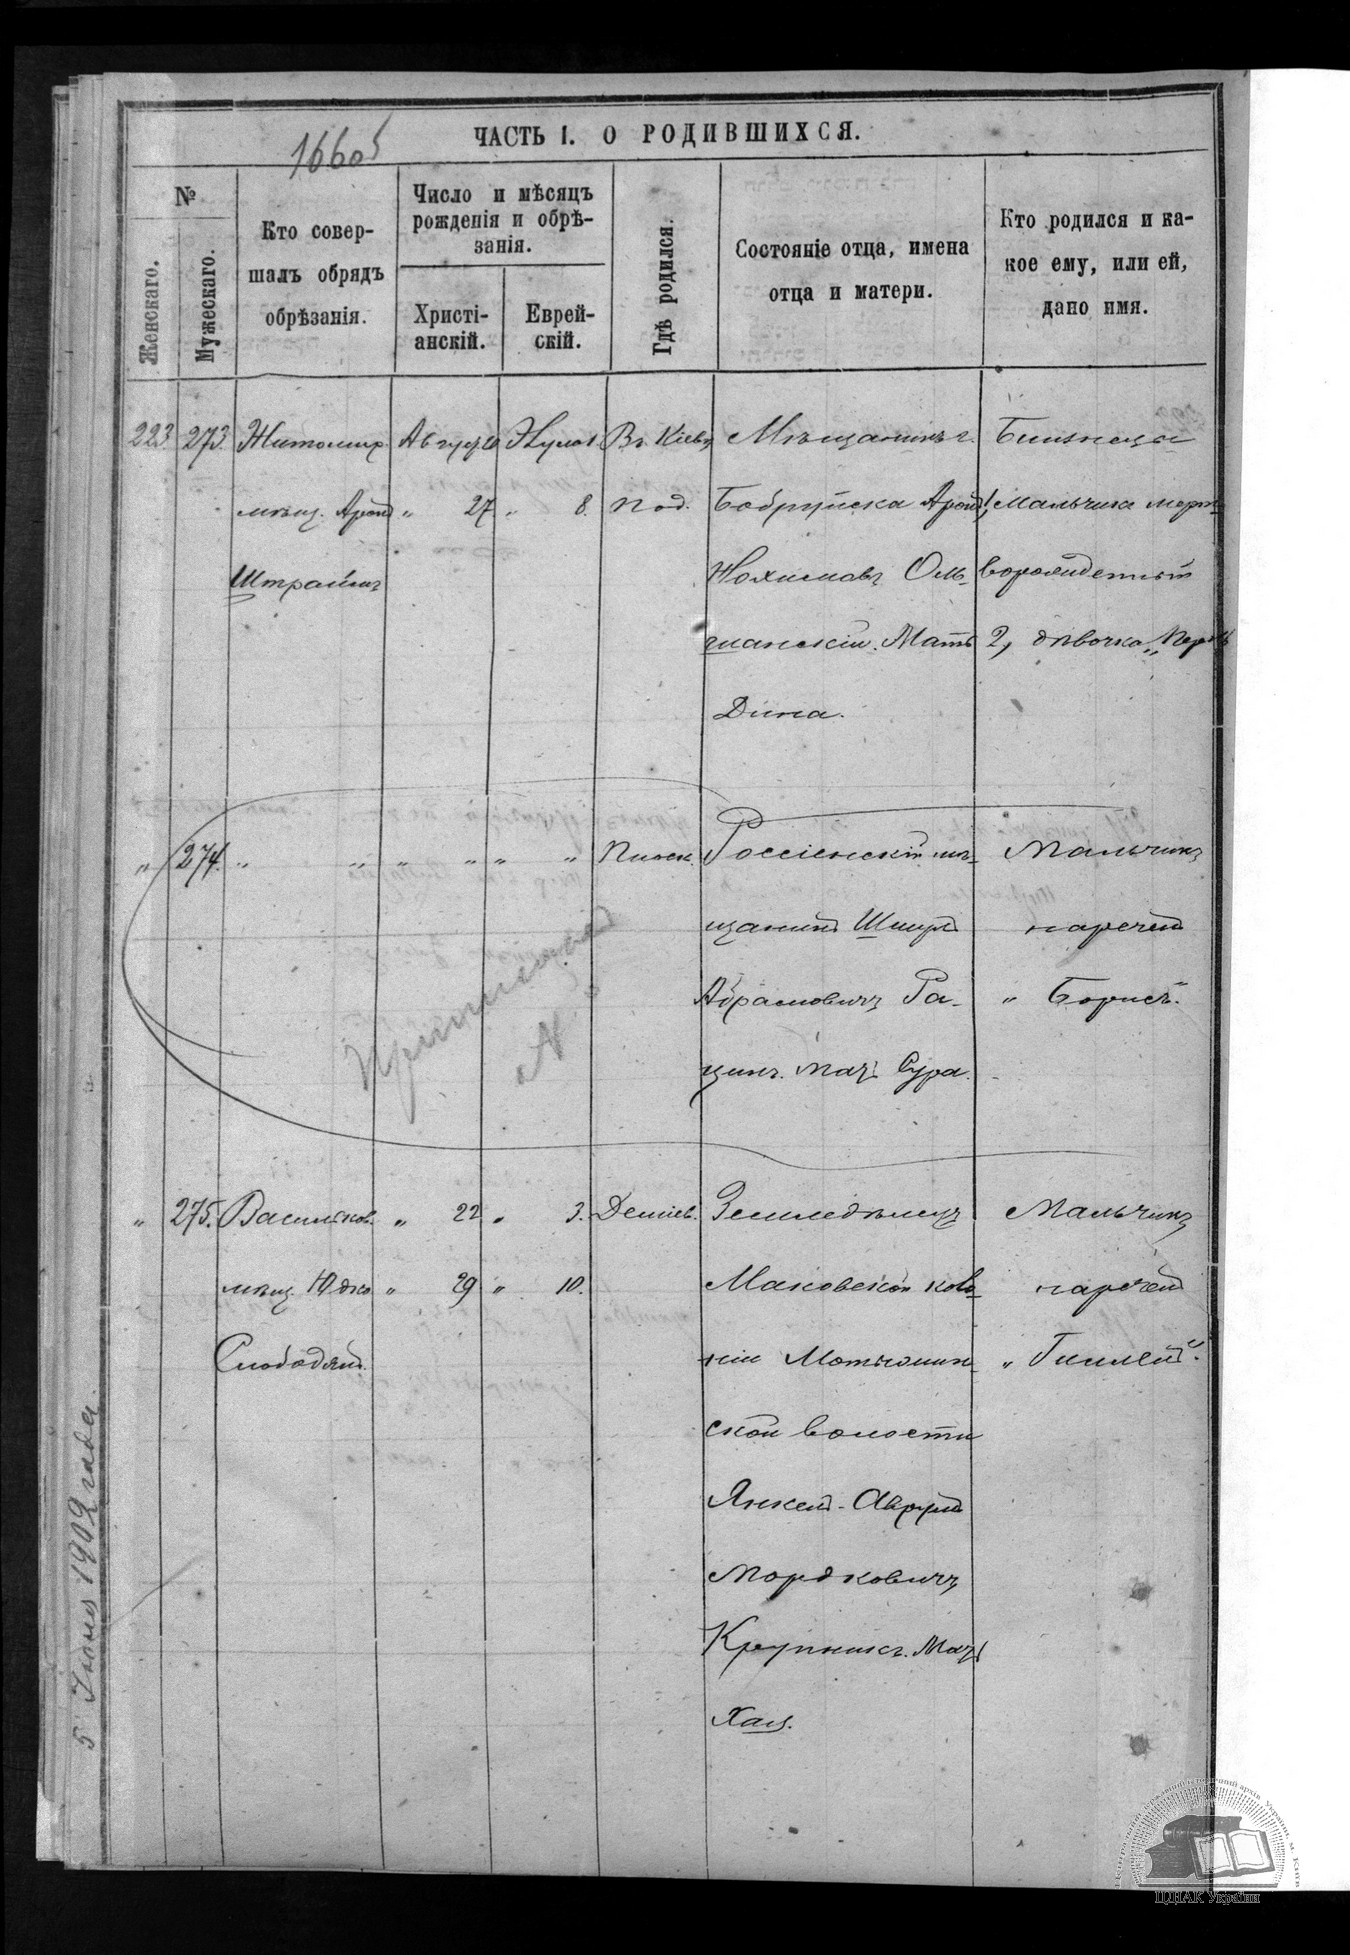 ЧАСТЬ I. О РОДИВШИХСЯ.
№
Женскаго.
Мужескаго.
Кто совер-
шалъ обрядъ
обрѣзанія.
Число и мѣсяцъ
рожденія и обрѣ-
занія.
Христі-
анскій.
Еврей-
скій.
Гдѣ родился.
Состояніе отца, имена
отца и матери.
Кто родился и ка-
кое ему, или ей,
дано имя.
223 273. Житомир.
мѣщ. Арон
Штраймъ
Августа
„ 27 „ 8.
Въ Кіевѣ
Под.
Мѣщанинъ г.
Бобруйска Арон
Нохимовъ Оль-
шанскій. Мать
Дина.
Близнецы
1, Мальчикъ мерт-
ворожденный
2, дѣвочка „Перль
„ 274. „ „ „ „ „ „
Плоск.
Россіенскій мѣ-
щанинъ Шмуль
Абрамовичъ Ра-
цинъ. Мать Сура.
Мальчикъ
нареченъ
„ Борисъ".
275. Васильков.
мѣщ. Юдко
Слободян.
„ 22 „ 3.
„ 29 „ 10.
Деміев.
Земледѣлецъ
Маковской коло-
ніи
ской волости
Янкель-Аврум
Мордковичъ
Крупникъ. Мать
Хая.
Мальчикъ
нареченъ
5 Іюня 1902 года
ЦДІАК України